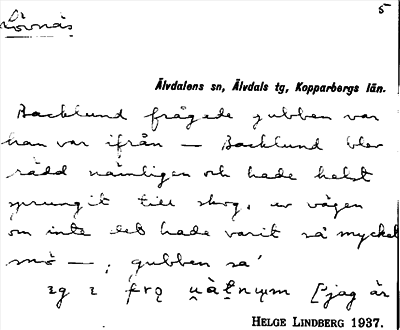 5
Lövnäs
Älvdalens sn, Älvdals tg, Kopparbergs län.
Backlund frågade gubben var
han var ifrån — Backlund blev
rädd nämligen och hade helst
sprungit till skog, ur vägen
om inte det hade varit så mycket
snö — ; gubben sa'
['jag är
HELGE LINDBERG 1937.